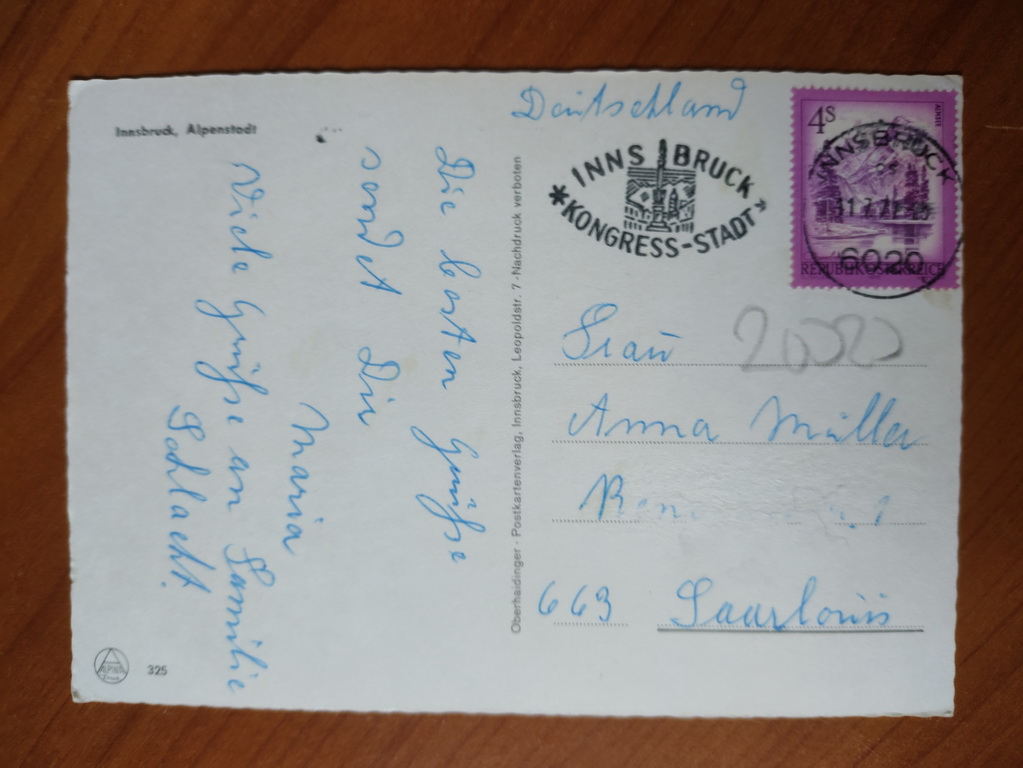 Innsbruck, Alpenstadt
Die besten Grüße
sendet Dir
Maria
Viele Grüße an Familie
Schlacht.
325
Oberhaidinger · Postkartenverlag, Innsbruck, Leopoldstr. 7 · Nachdruck verboten
Deutschland
INNSBRUCK
KONGRESS-STADT
4S
ALMSEE
REPUBLIK ÖSTERREICH
INNSBRUCK
6020
Frau
Anna Müller
663 Saarlouis